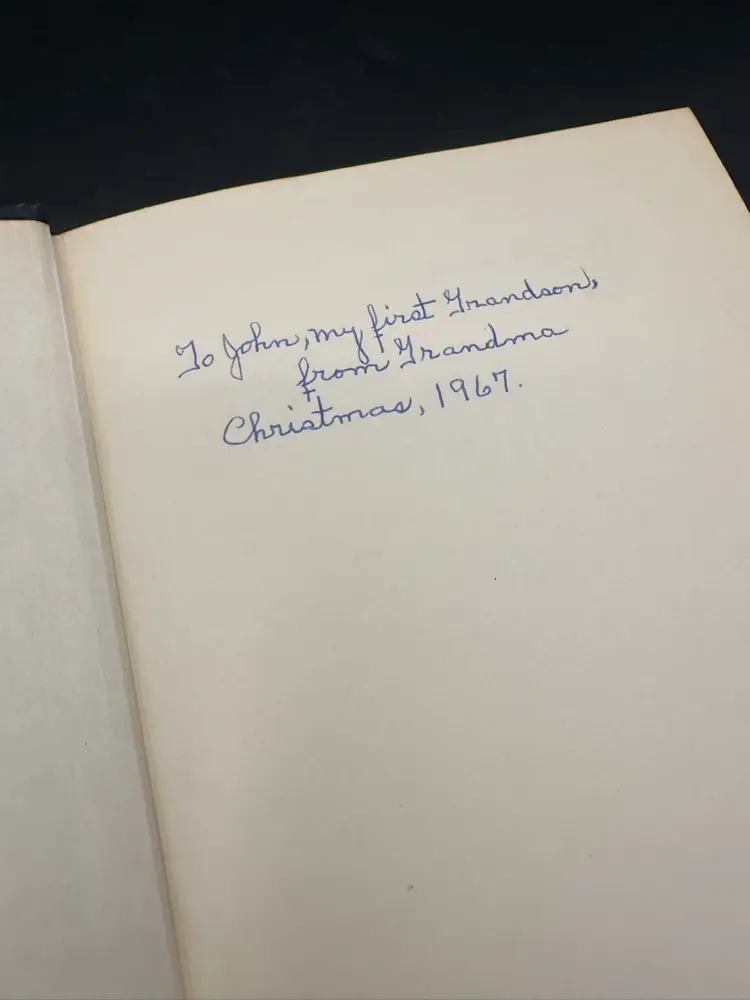 To John, my first Grandson,
from Grandma
Christmas, 1967.